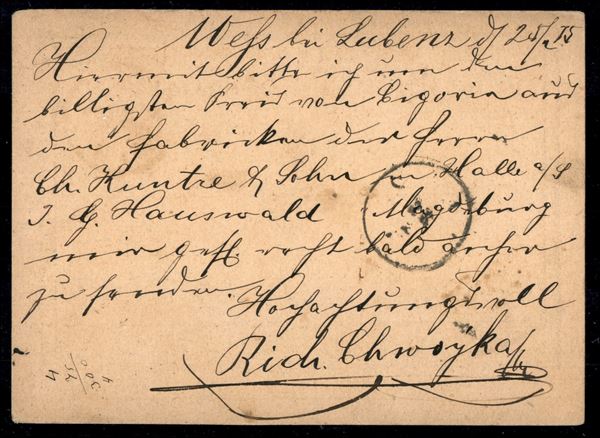 Wess bei Lubenz d/ 25/2 75
Hiermit bitte ich um den
billigsten Preis von Cigorie aus
den Fabricken der Herren
Ch. Kuntze & Sohn in Halle a/S
I. G. Hauswald Magdeburg
mir gefl. recht bald anher
zu senden.
Hochachtungsvoll
Rich. Chwoyka